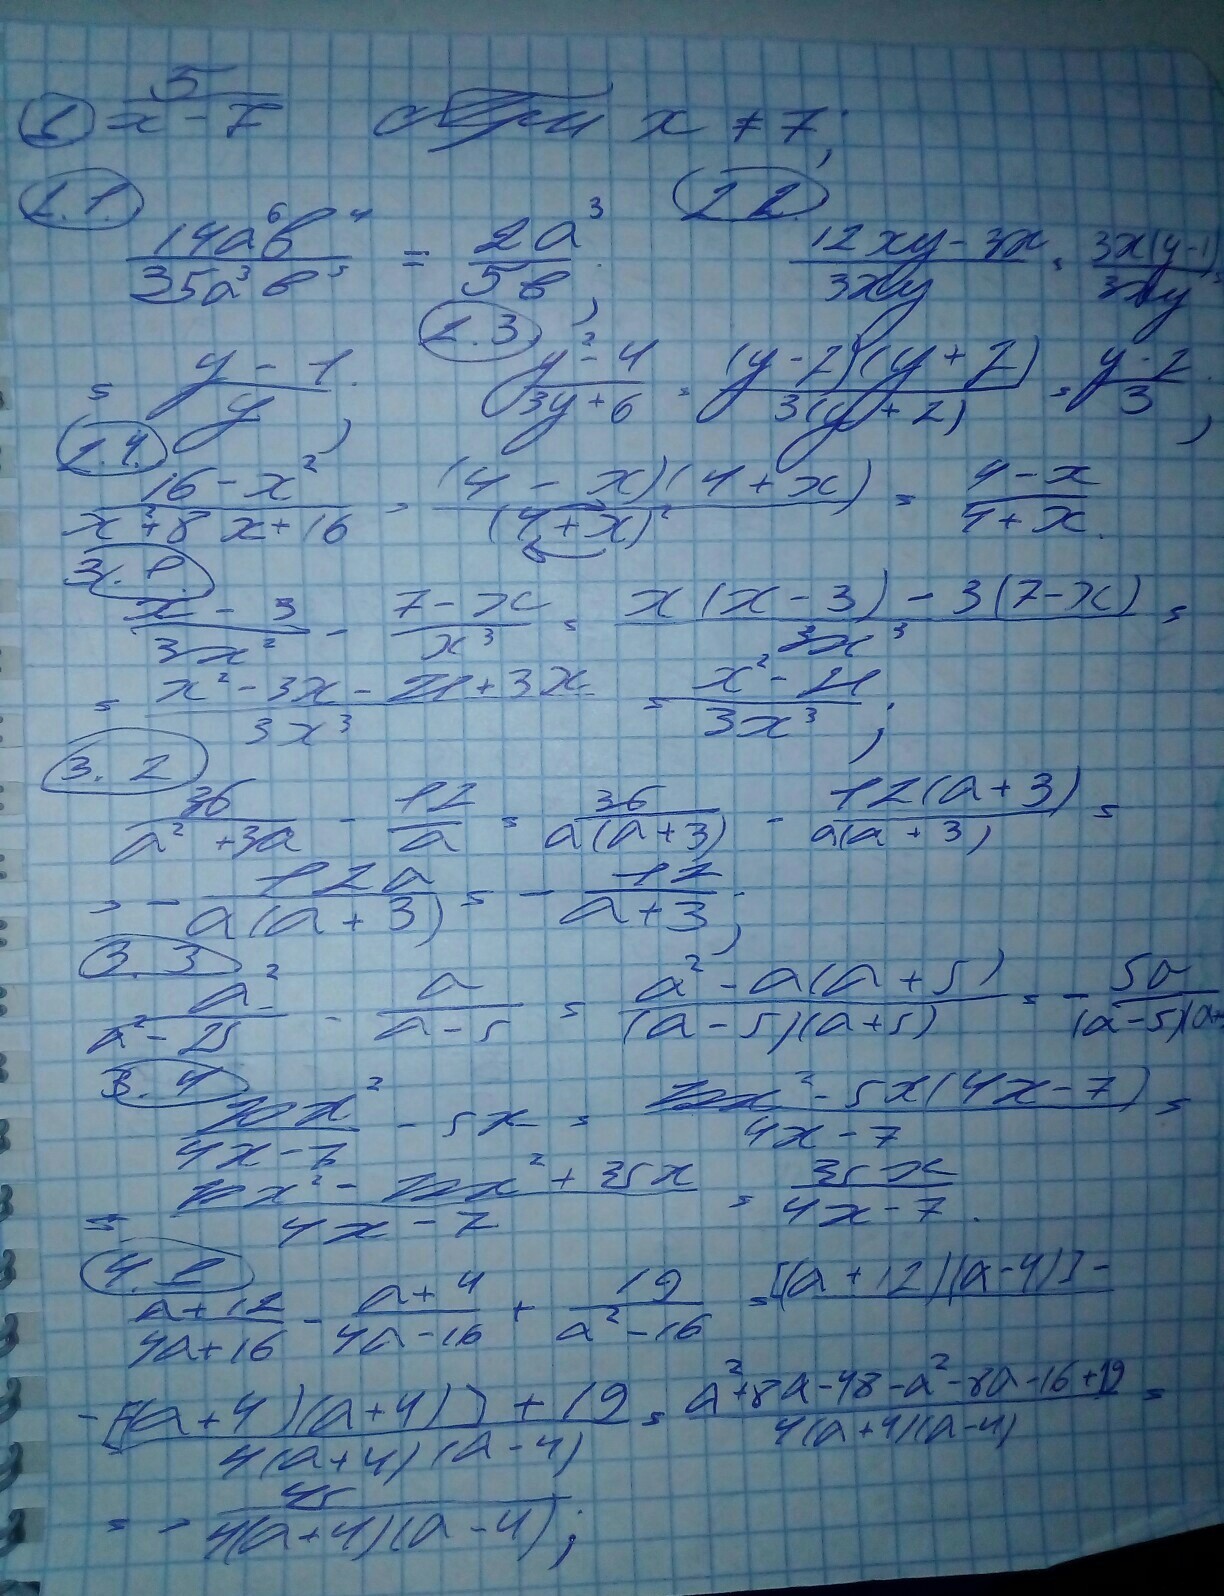 1 5/(x-7) при x ≠ 7;
2.1. 2.2.
14a⁶b⁴/35a³b⁵ = 2a³/5b; (12xy-3x)/3xy = 3x(y-1)/3xy =
= (y-1)/y; 2.3. (y²-4)/(3y+6) = (y-2)(y+2)/3(y+2) = (y-2)/3;
2.4. (16-x²)/(x²+8x+16) = (4-x)(4+x)/(4+x)² = (4-x)/(4+x).
3.1.
(x-3)/3x² - (7-x)/x³ = (x(x-3)-3(7-x))/3x³ =
= (x²-3x-21+3x)/3x³ = (x²-21)/3x³;
3.2
36/(a²+3a) - 12/a = 36/a(a+3) - 12(a+3)/a(a+3) =
= -12a/a(a+3) = -12/(a+3);
3.3
a²/(a²-25) - a/(a-5) = (a²-a(a+5))/(a-5)(a+5) = -5a/(a-5)(a+
3.4
x²/(4x-7) - 5x = x²-5x(4x-7)/(4x-7) =
= (x²-x²+35x)/(4x-7) = 35x/(4x-7).
4.1
(a+12)/(4a+16) - (a+4)/(4a-16) + 19/(a²-16) = [(a+12)(a-4)]-
-[(a+4)(a+4)]+19/4(a+4)(a-4) = (a²+8a-48-a²-8a-16+19)/4(a+4)(a-4) =
= -45/4(a+4)(a-4);